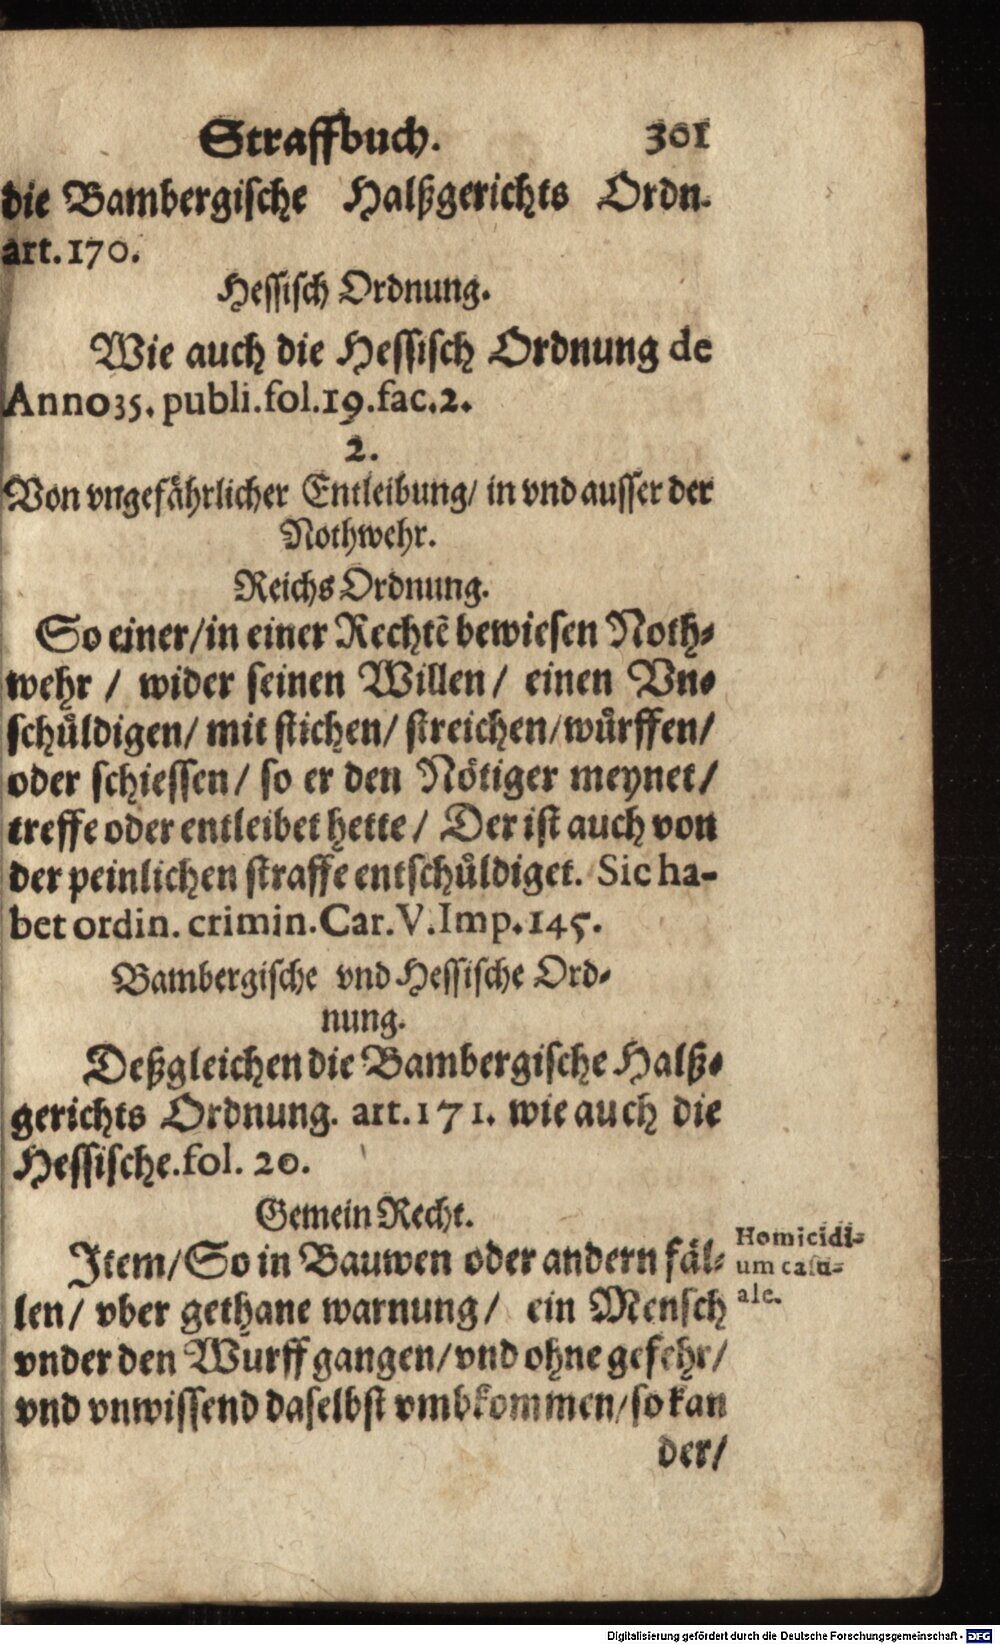 Straffbuch. 301
die Bambergische Halßgerichts Ordn.
art. 170.
Hessisch Ordnung.
Wie auch die Hessisch Ordnung de
Anno 35. publi. fol. 19. fac. 2.
2.
Von vngefährlicher Entleibung/ in vnd ausser der
Nothwehr.
Reichs Ordnung.
So einer/ in einer Rechtẽ bewiesen Noth-
wehr / wider seinen Willen / einen Vn-
schuͤldigen/ mit stichen/ streichen/ wuͤrffen/
oder schiessen/ so er den Nötiger meynet/
treffe oder entleibet hette / Der ist auch von
der peinlichen straffe entschuͤldiget. Sic ha-
bet ordin. crimin. Car. V. Imp. 145.
Bambergische vnd Hessische Ord-
nung.
Deßgleichen die Bambergische Halß-
gerichts Ordnung. art. 171. wie auch die
Hessische. fol. 20.
Gemein Recht.
Item/ So in Bauwen oder andern fäl-
len/ vber gethane warnung/ ein Mensch
vnder den Wurff gangen/ vnd ohne gefehr/
vnd vnwissend daselbst vmbkommen/ so kan
der/
Homicidi-
um casu-
ale.
Digitalisierung gefördert durch die Deutsche Forschungsgemeinschaft - DFG